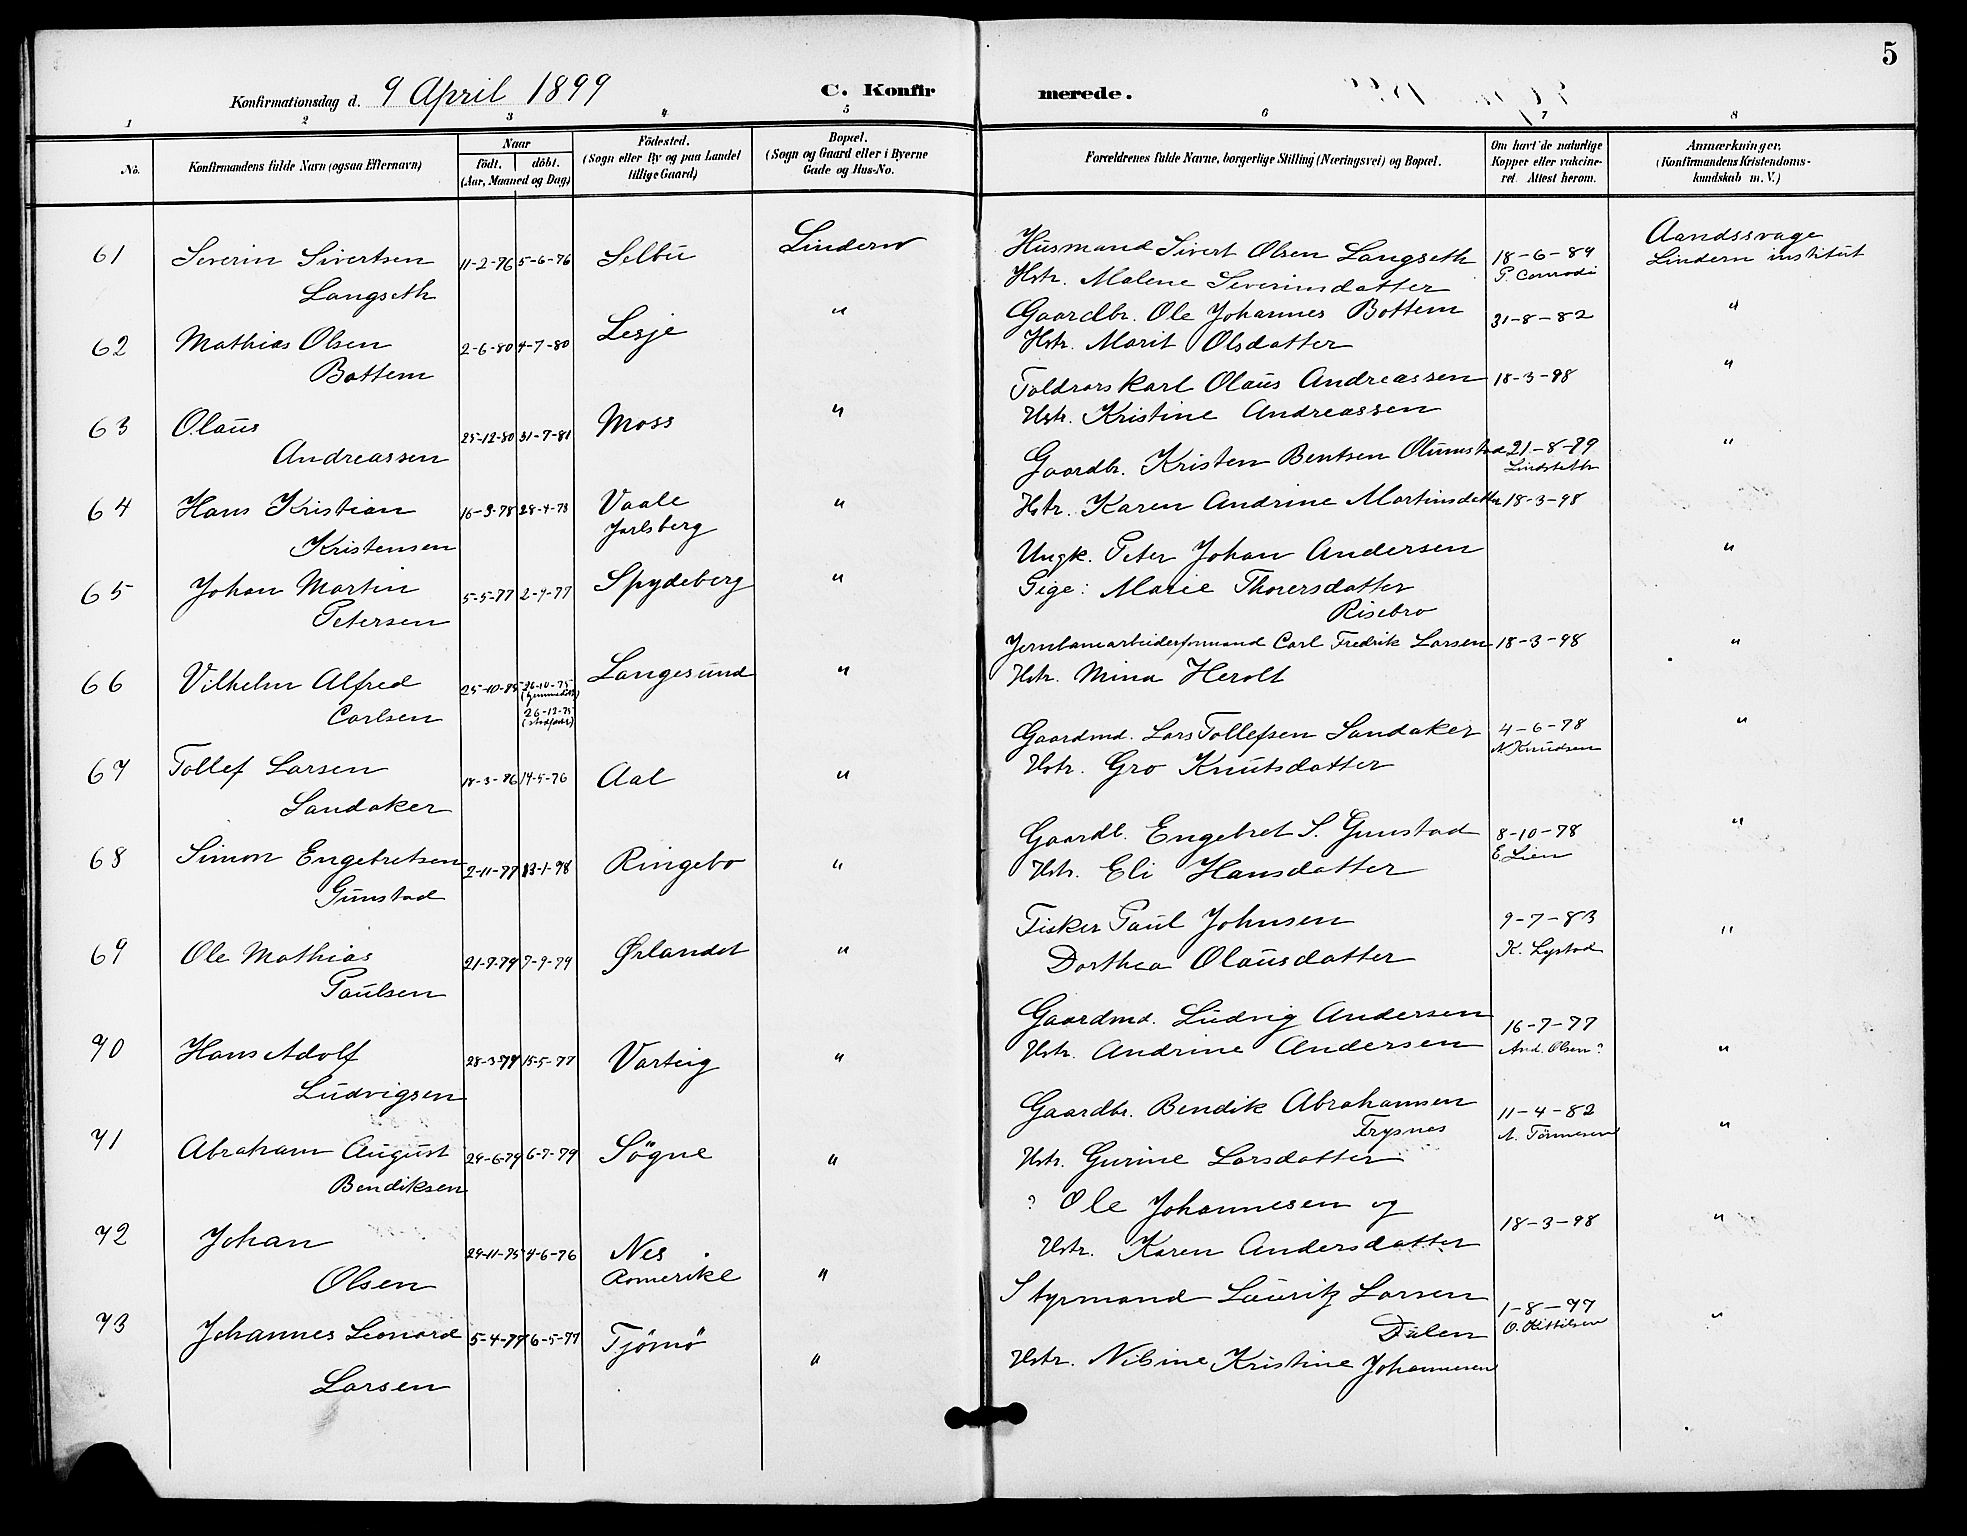 5
Konfirmationsdag d. 9 April 1899
C. Konfirmerede.
1 2 3 4 5 6 7 8
No.
Konfirmandens fulde Navn (ogsaa Efternavn)
Naar
födt. döbt.
(Aar, Maaned og Dag)
Födested.
(Sogn eller By og paa Landet
tillige Gaard)
Bopæl.
(Sogn og Gaard eller i Byerne
Gade og Hus-No.
Forældrenes fulde Navne, borgerlige Stilling (Næringsvei) og Bopæl.
Om havt de naturlige
Kopper eller vaccine-
ret. Attest herom.
Anmærkninger.
(Konfirmandens Kristendoms-
kundskab m. V.)
61 Severin Sivertsen 11-2-76 5-6-76 Selbu Lindern Husmand Sivert Olsen Langseth 18-6-84 Aandssvage
Langseth Hstr. Malene Severinsdatter P. Conradi Lindern institut
62 Mathias Olsen 2-6-80 4-7-80 Lesje " Gaardbr. Ole Johannes Bottem 31-8-82 "
Bottem Hstr. Marit Olsdatter
63 Olaus 25-12-80 31-7-81 Moss " Toldrorskarl Olaus Andreassen 18-3-98 "
Andreassen Hstr. Kristine Andreassen
64 Hans Kristian 16-3-78 28-4-78 Vaale " Gaardbr. Kristen Bentsen 21-8-79 "
Kristensen Jarlsberg Hstr. Karen Andrine Martinsdatter 18-3-98
65 Johan Martin 5-5-77 2-9-77 Spydeberg " Ungk. Peter Johan Andersen "
Petersen Pige: Marie Thorersdatter
Risebro
66 Vilhelm Alfred 25-10-75 26-10-75 Langesund " Jernbanearbeiderformand Carl Fredrik Larsen 18-3-98 "
Carlsen (hjemmedøbt) 26-12-75 Hstr. Mina Herolt
67 Tollef Larsen 18-3-76 14-5-76 Aal " Gaardmd. Lars Tollefsen Sandaker 4-6-78 "
Sandaker Hstr. Gro Knutsdatter N Knudsen
68 Simon Engebretsen 2-11-77 13-1-78 Ringebo " Gaardb. Engebret S. Gunstad 8-10-78 "
Gunstad Hstr. Eli Hansdatter E Lien
69 Ole Mathias 21-7-79 7-9-79 Ørlandet " Fisker Paul Johnsen 9-7-83 "
Paulsen Dorthea Olausdatter K. Lystad
70 Hans Adolf 28-3-77 15-5-77 Varteig " Gaardmd. Ludvig Andersen 16-7-77 "
Ludvigsen Hstr. Andrine Andersen And. Olsen?
71 Abraham August 29-6-79 6-7-79 Søgne " Gaardbr. Bendik Abrahamsen 11-4-82 "
Bendiksen Trysnes A. Tönnesen
Hstr. Gurine Larsdatter
72 Johan 29-11-75 4-6-76 Nes " ? Ole Johannesen og 18-3-98 "
Olsen Romerike Hstr. Karen Andersdatter
73 Johannes Leonard 5-4-77 6-5-77 Tjömö " Styrmand Lauritz Larsen 1-8-77 "
Larsen Dalen O. Kittilsen
Hstr. Nilsine Kristine Johannesen